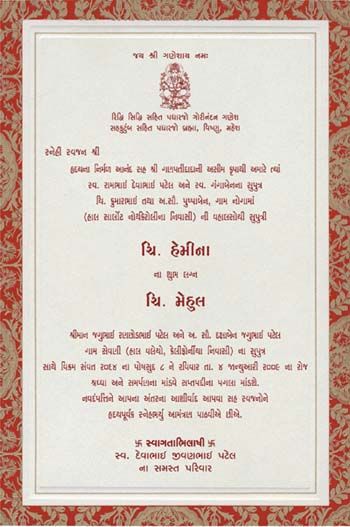 જય શ્રી ગણેશાય નમઃ
રિદ્ધિ સિદ્ધિ સહિત પધારજો ગૌરીનંદન ગણેશ
સહકુટુંબ સહિત પધારજો બ્રહ્મા, વિષ્ણુ, મહેશ
સ્નેહી સ્વજન શ્રી
હૃદયના નિર્મળ આનંદ સહ શ્રી ગણપતીદાદાની અસીમ કૃપાથી અમારે ત્યાં
સ્વ. રામાભાઈ દેવાભાઈ પટેલ અને સ્વ. ગંગાબેનના સુપુત્ર
ચિ. કુમારભાઈ તથા અ.સૌ. પુષ્પાબેન, ગામ નોગામાં
(હાલ સાર્લોટ નોર્થકેરોલીના નિવાસી) ની વહાલસોયી સુપુત્રી
ચિ. હેમીના
ના શુભ લગ્ન
ચિ. મેહુલ
શ્રીમાન જગુભાઈ રણછોડભાઈ પટેલ અને અ. સૌ. દક્ષાબેન જગુભાઈ પટેલ
ગામ સેવાણી (હાલ વલેયો, કેલીફોર્નીયા નિવાસી) ના સુપુત્ર
સાથે વિક્રમ સંવત ૨૦૬૫ ના પોષસુદ ૮ ને રવિવાર તા. ૪ જાન્યુઆરી ૨૦૦૯ ના રોજ
શ્રધ્ધા અને સમર્પણના માંડવે સપ્તપદીના પગલા માંડશે.
નવદંપતિને આપના અંતરના આશીર્વાદ આપવા સહ સ્વજનોને
હૃદયપૂર્વક સ્નેહભર્યુ આમંત્રણ પાઠવીએ છીએ.
卐 સ્વાગતાભિલાષી 卐
સ્વ. દેવાભાઈ જીવણભાઈ પટેલ
ના સમસ્ત પરિવાર